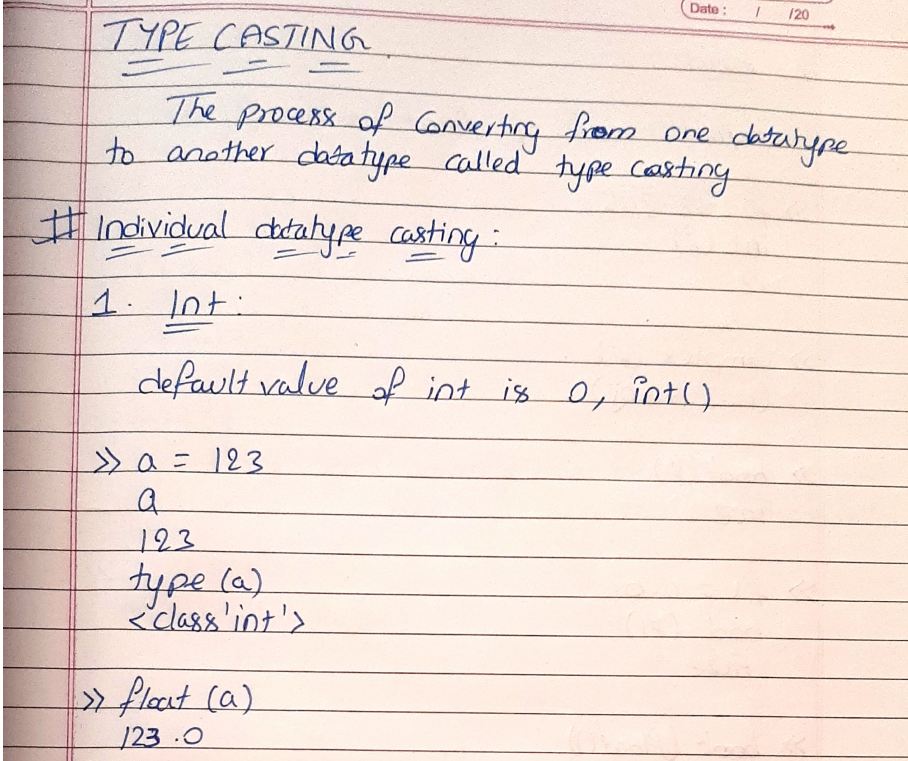 Date : / /20
TYPE CASTING
The process of Converting from one datatype
to another datatype called type casting
# Individual datatype casting :
1. Int :
default value of int is 0, int()
>> a = 123
a
123
type (a)
<class'int'>
>> float (a)
123.0